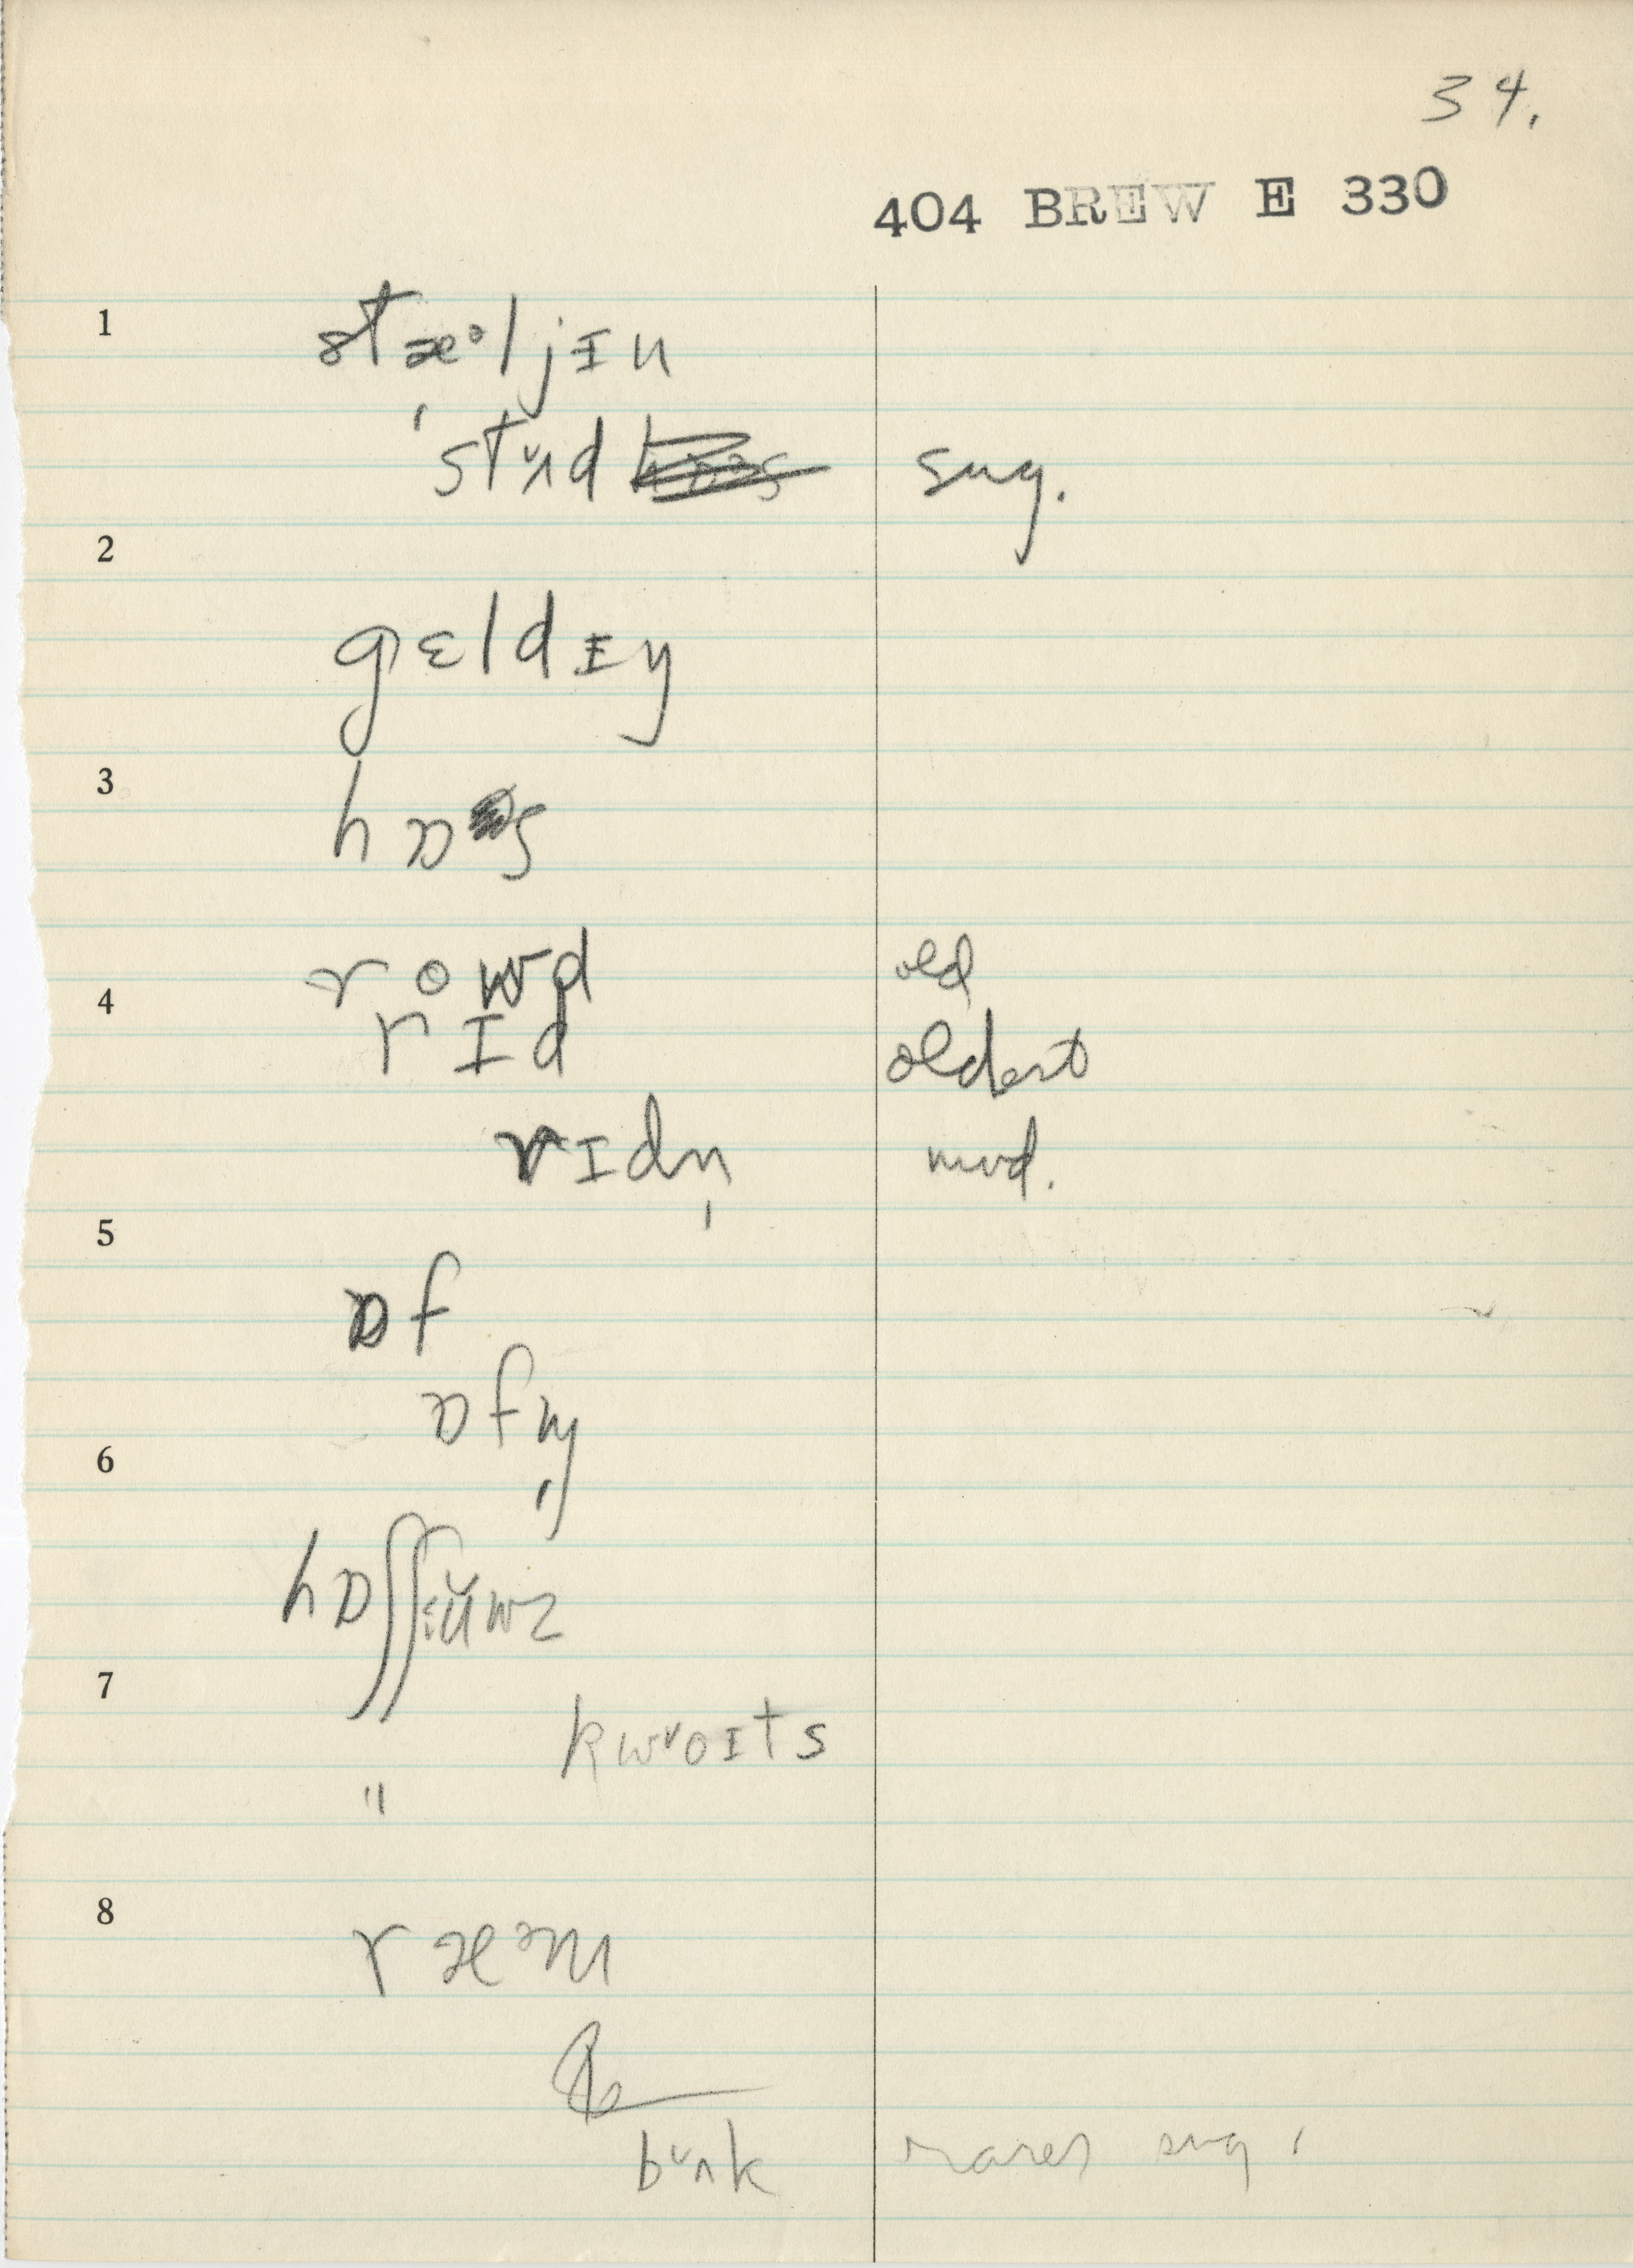 34.
404 BREW E 330
1
stæᵊljɪn
ˌstʌ̌d sug.
2
gɛldɪŋ
3
hɒs
4
rowd old
rɪd oldest
rɪdn̩ mod.
5
ɒf
6
ɒfm̩
hɒʃʃʉ̌wz
7
kwˇoɪts
"
8
ræᵊm
bˇʌk rarer sug.